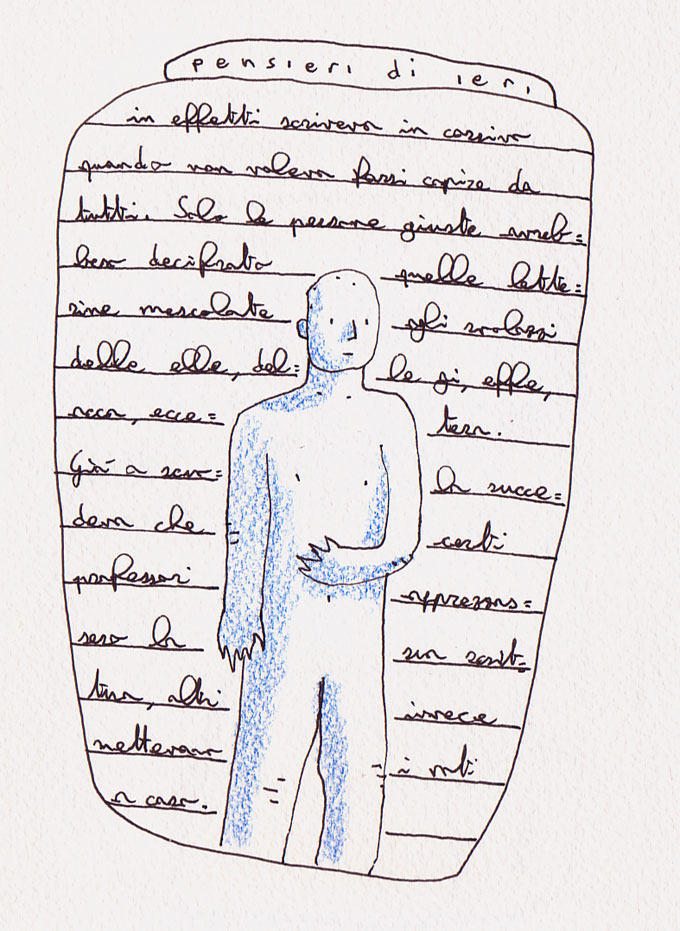 pensieri di ieri
in effetti scrivevo in corsivo
quando non volevo farsi capire da
tutti. Solo le persone giuste avreb=
bero decifrato quelle lette=
rine mescolate agli svolazzi
delle elle, del= le gi, effe,
acca, ecce= tera.
Già a scuo= la succe=
deva che certi
professori apprezzas=
sero la sua scrit=
tura, altri invece
mettevano i voti
a caso.